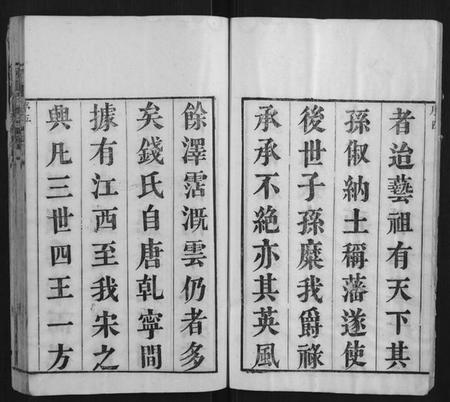 者迨藝祖有天下其
孫俶納土稱藩遂使
後世子孫糜我爵祿
承承不絕亦其英風
餘澤霑溉雲仍者多
矣錢氏自唐乹寧間
據有江西至我宋之
興凡三世四王一方